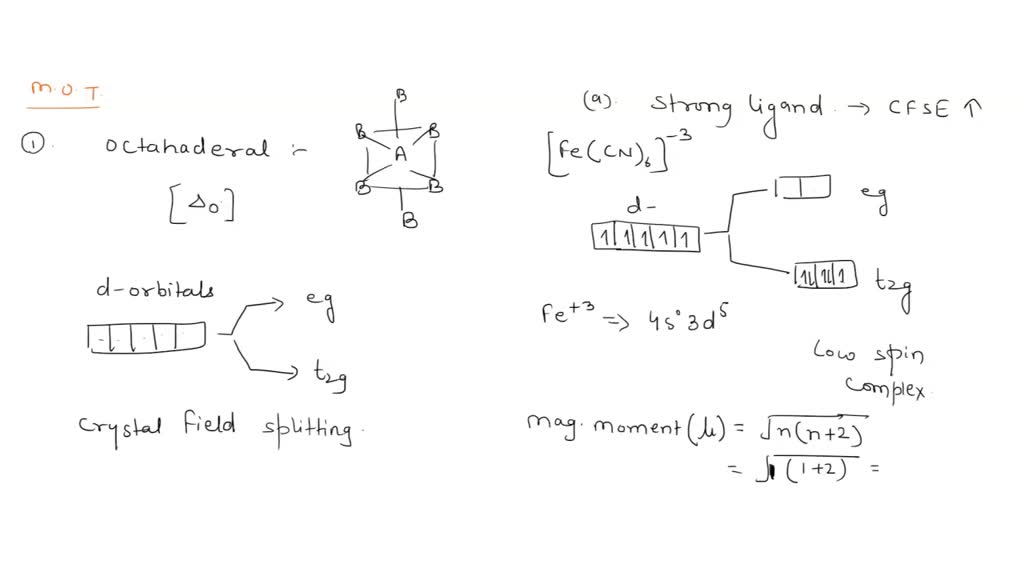 M.O.T.
①. octahaderal :-
[Δo]
B
B B
A
B B
B
d-orbitals
eg
t2g
crystal field splitting.
(a). strong ligand. → CFSE ↑
[Fe(CN)6]^-3
d-
1 1 1 1 1
eg
1l 1l 1
t2g
Fe^+3 => 4s° 3d^5
Low spin
complex.
mag. moment (μ) = √n(n+2)
= √1(1+2) =